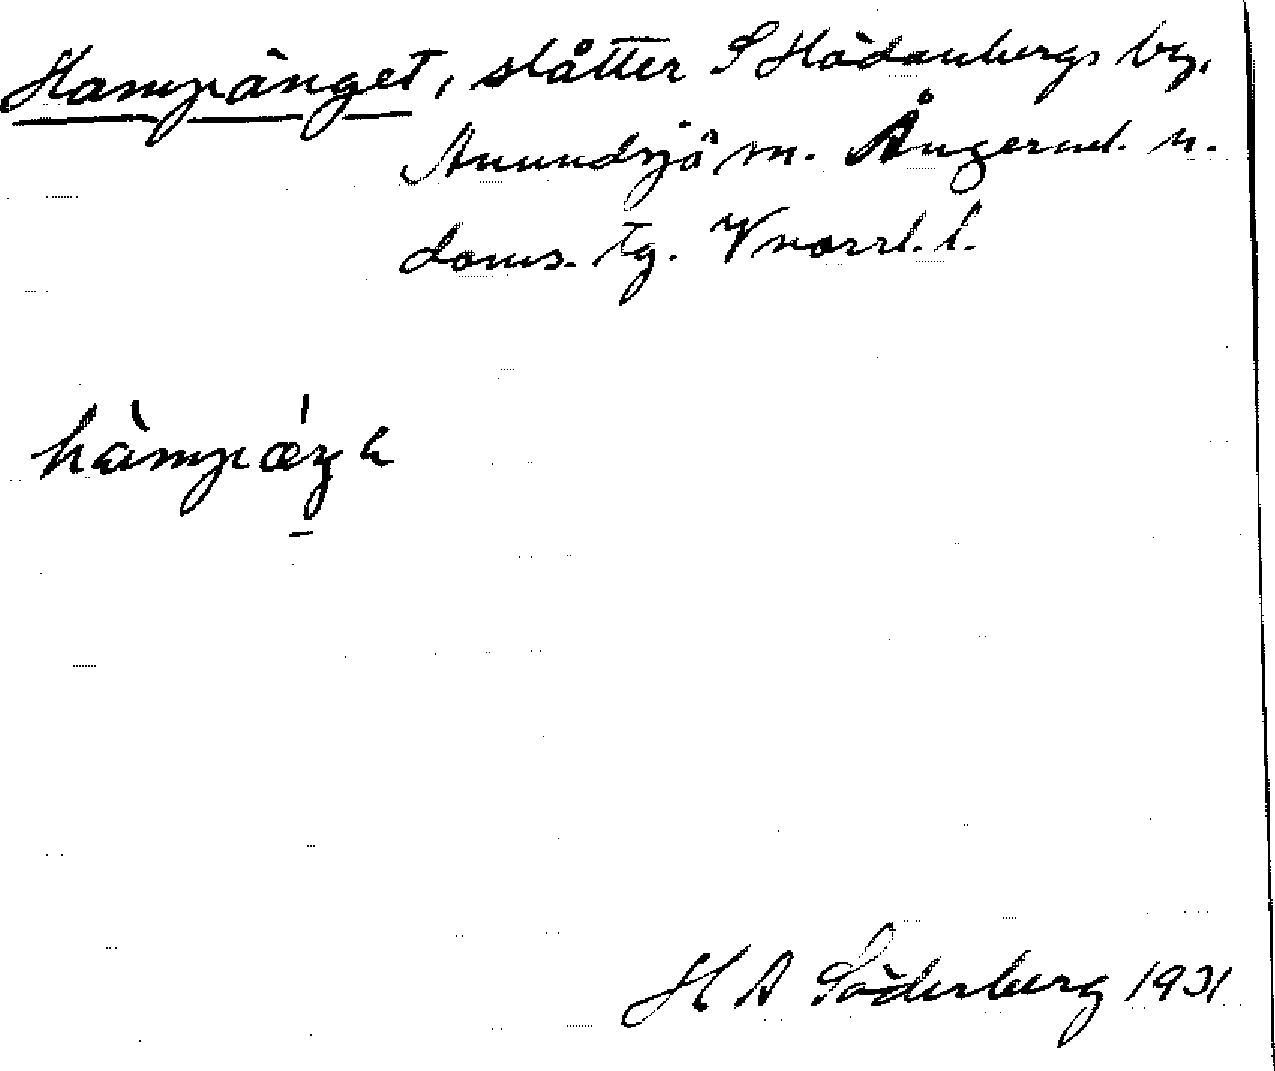 Hampänget, slåtter S Hädanbergs by,
Anundsjö sn. Ångerml. n.
doms. tg. Vnorrl. l.
H A Söderberg 1931